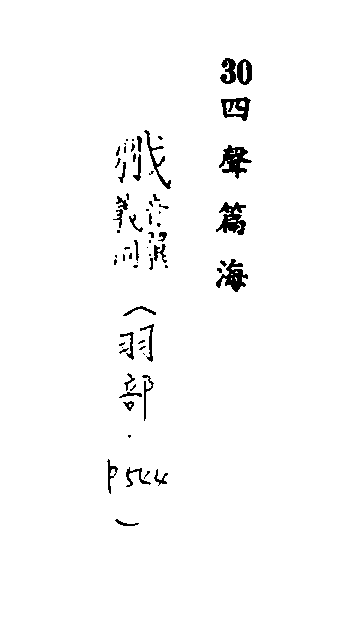 30 四聲篇海
音
義同
(羽部.p544)